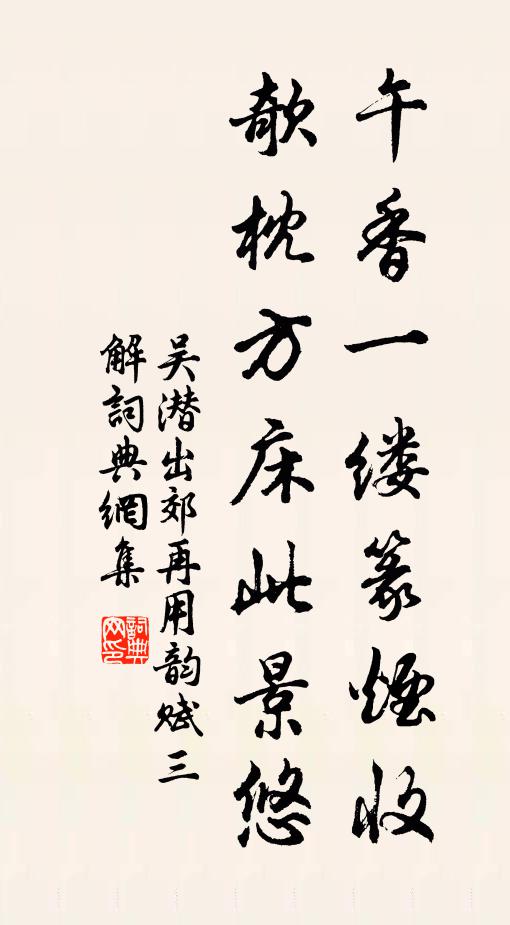 午香一缕篆煙收
欹枕方床此景悠
吴潜出郊再用韵赋三
解詞典網集
詞典
网印